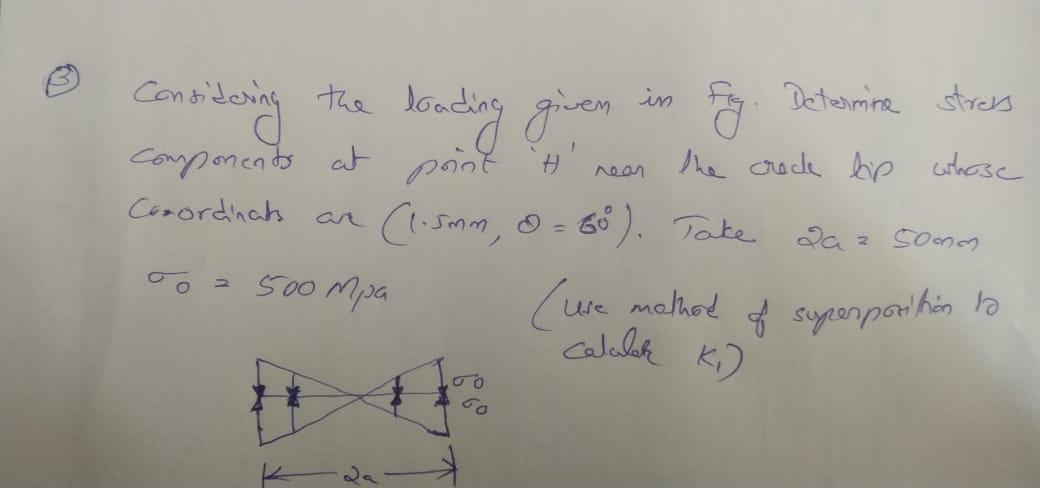 3 Considering the loading given in Fig. Determine stress
components at point 'H' near the crack tip whose
Co-ordinats are (1.5mm, θ = 60°). Take 2a = 50mm
σ0 = 500 Mpa (use method of superposition to
calculate K1)
σ0
σ0
2a